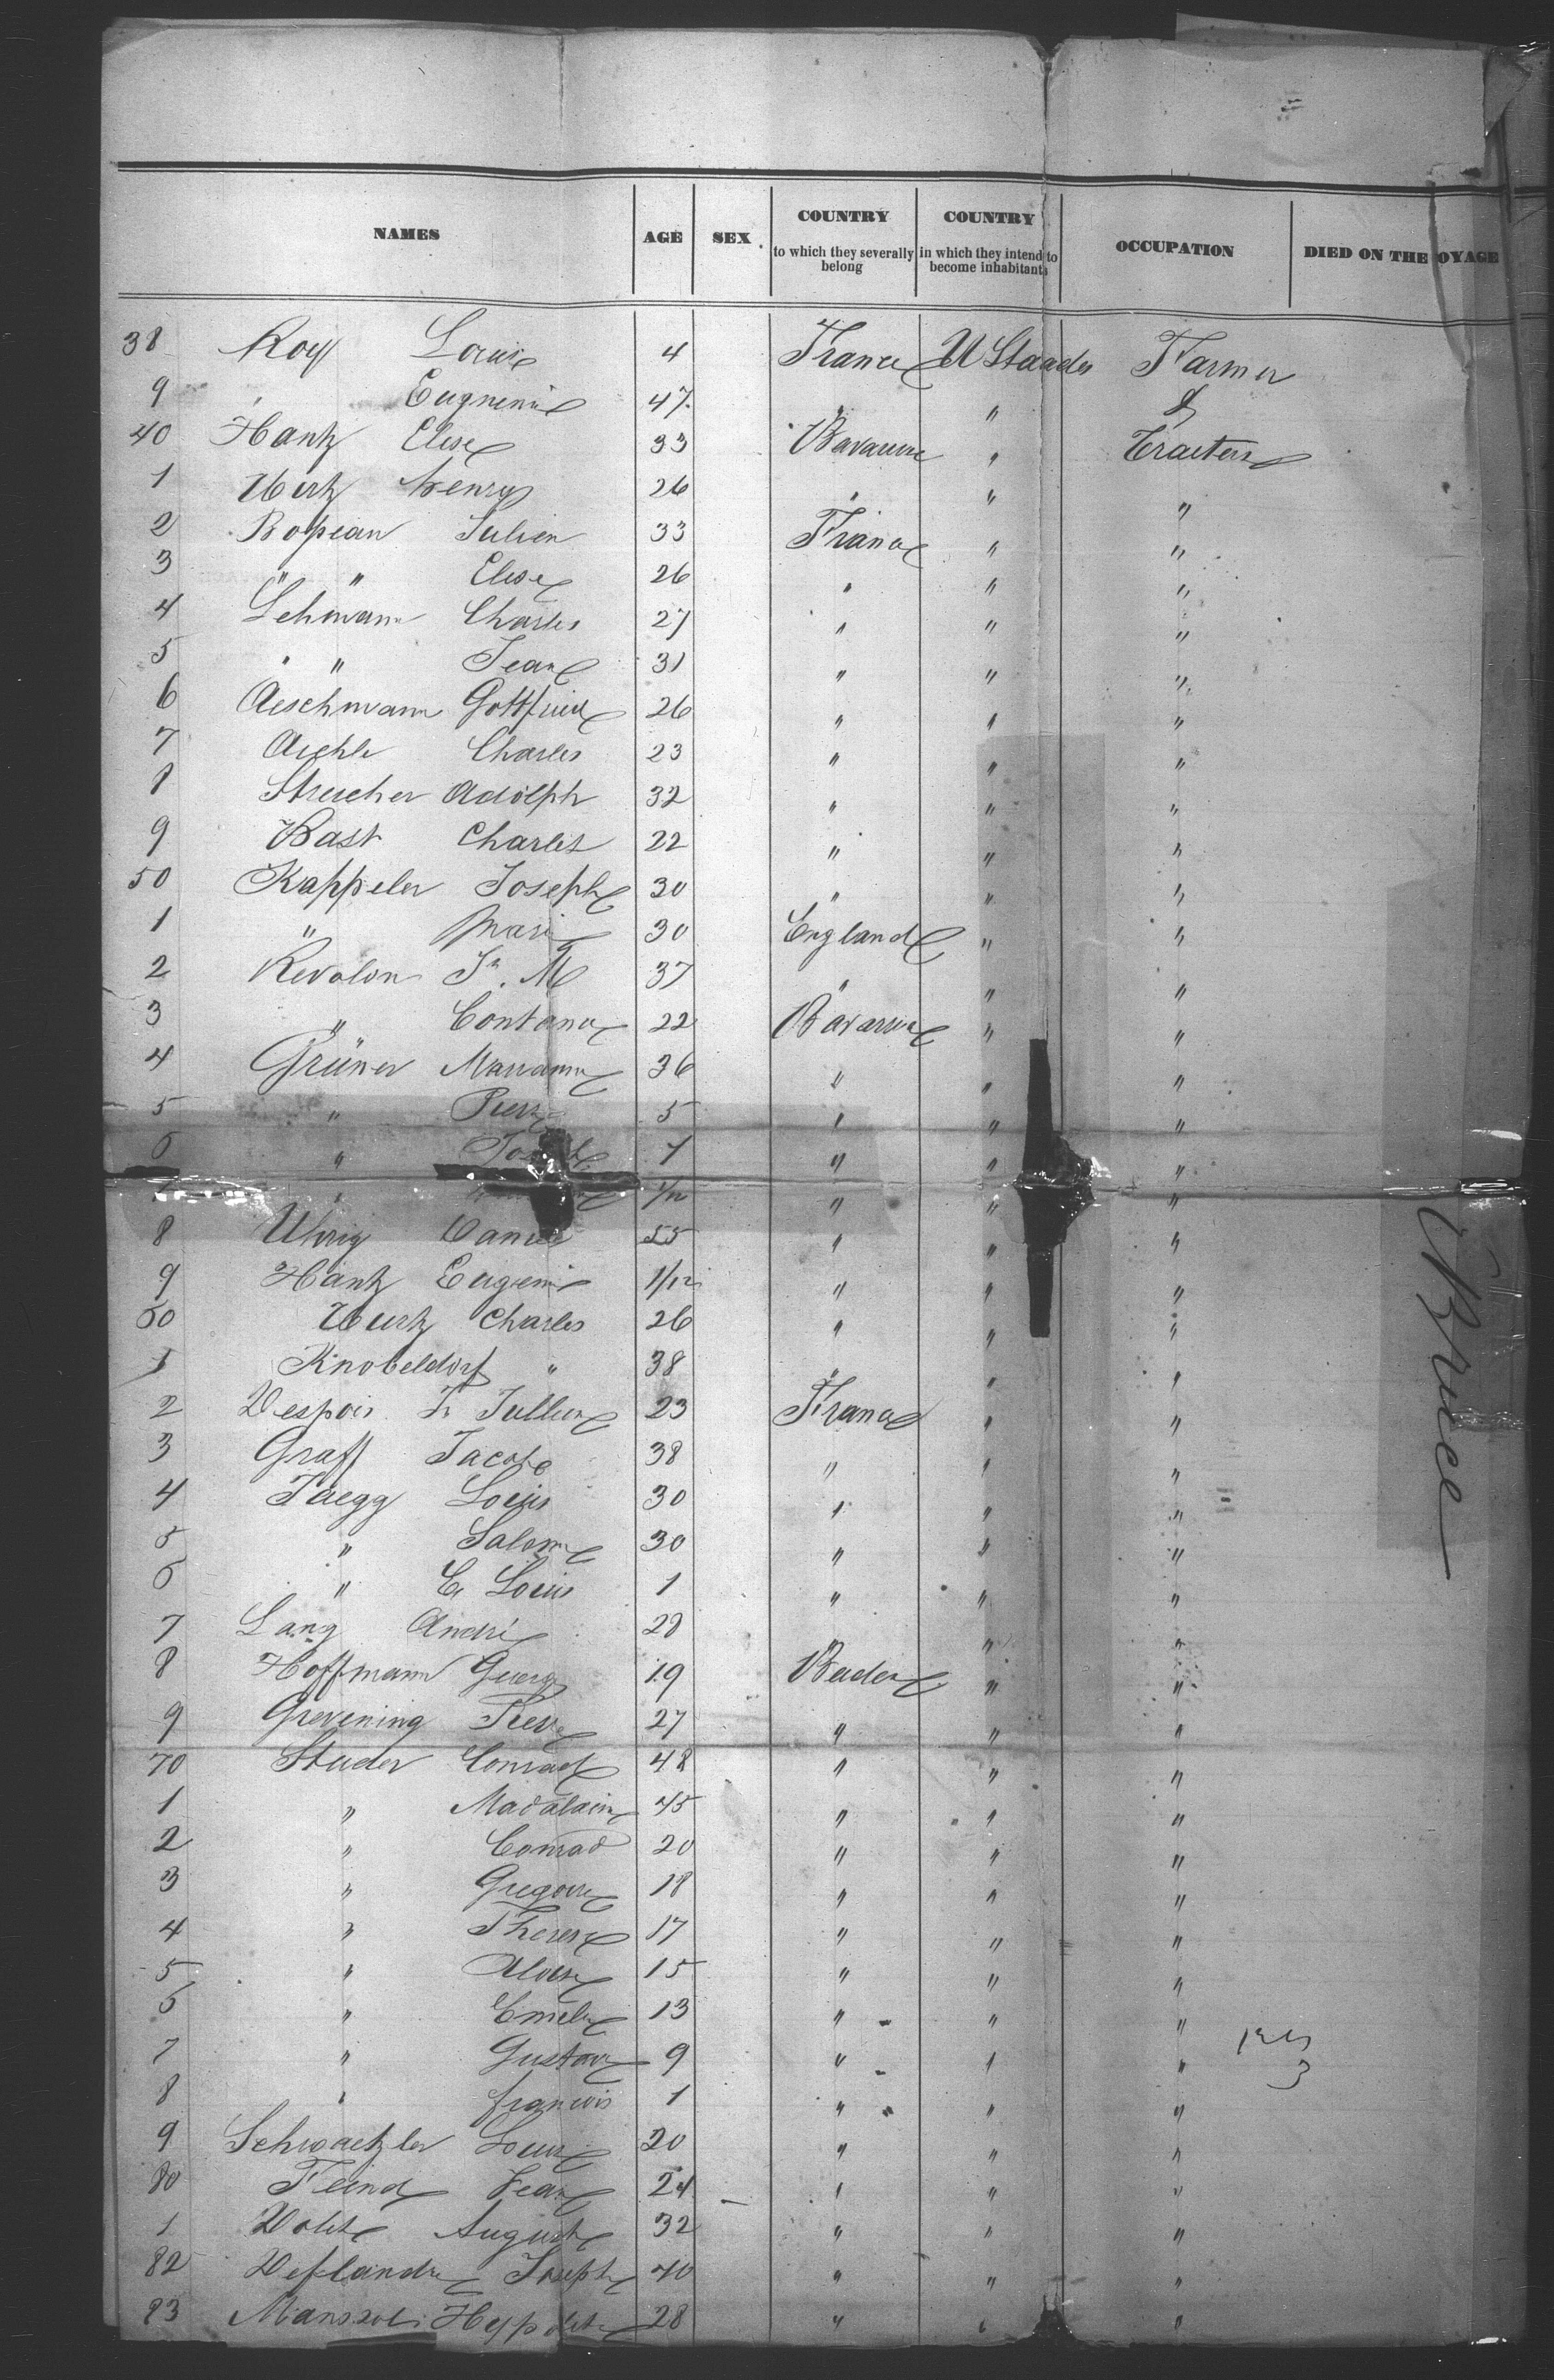 NAMES AGE SEX COUNTRY to which they severally belong COUNTRY in which they intend to become inhabitants OCCUPATION DIED ON THE OYAGE
38 Roy Louis 4 France U Staades Farmer
9 " Eugnenie 47 " " "
40 Hantz Elise 33 Bavariene "
1 Wertz Henry 26 " " "
2 Bopean Julien 33 France " "
3 " " Elise 26 " " "
4 Lehmann Charles 27 " " "
5 " " Jean 31 " " "
6 Aeschmann Gottfried 26 " " "
7 Aichle Charles 23 " " "
8 Streicher Adolph 32 " " "
9 Bast Charles 22 " " "
50 Kappeler Joseph 30 " " "
1 " Marie 30 England " "
2 Revolon Jn. M 37 " " "
3 " Contance 22 Bavariene " "
4 Grüner Marianne 36 " " "
5 " Pierre 5 " " "
6 " Joseph 7 " " "
" 1/12 " " "
8 Uhrig Daniel 55 " " "
9 Hantz Eugenie 1/12 " " "
60 Wurtz Charles 26 " " "
1 Knobeldorf " 38 " " "
2 Despois Fr Jullien 23 France " "
3 Graff Jacob 38 " " "
4 Jaegg Louis 30 " " "
5 " Salome 30 " " "
6 " E Louis 1 " " "
7 Lang André 28 " "
8 Hoffmann Georg 19 Baden " "
9 Grevening Pierre 27 " " "
70 Studer Conrad 48 " " "
1 " Madalaine 45 " " "
2 " Conrad 20 " " "
3 " Gregoire 18 " " "
4 " Therese 17 " " "
5 " Aloise 15 " " "
6 " Emelie 13 " " "
7 " Gustave 9 " " "
8 " francois 1 " " "
9 Schwaetzler Louis 20 " " "
80 Feind Jean 24 " " "
1 August 32 " " "
82 Deflandre Joseph 40 " " "
83 Hyppolite 28 " " "
Bruce